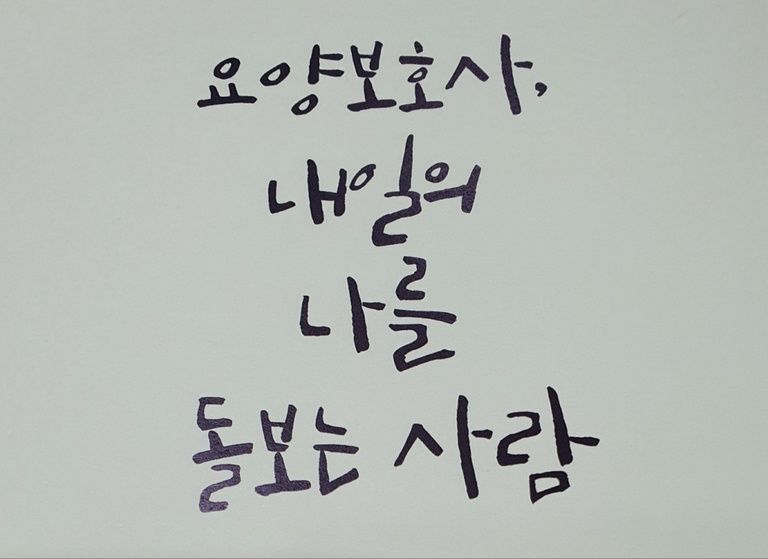 요양보호사,
내일의
나를
돌보는 사람